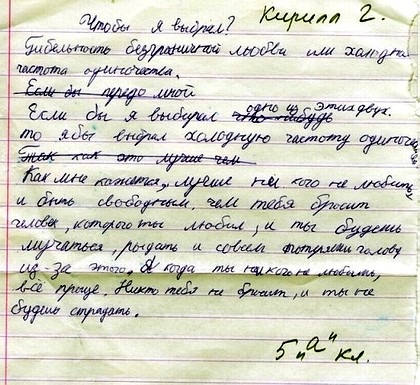 Чтобы я выбрал? Кирилл Г.
Гибельность безграничной любви или холодна
частота одиночества.
Если бы передо мной
Если бы я выбирал что-нибудь одно из этих двух.
то я бы выбрал холодную частоту одиночества
Так как это лучше чем
Как мне кажется, лучше ни кого не любить
и быть свободным, чем тебя бросит
человек, которого ты любил, и ты будешь
мучаться, рыдать и совсем потеряеш голову
из-за этого. А когда ты никого не любишь,
всё проще. Никто тебя не бросит, и ты не
будешь страдать.
5 "а" кл.